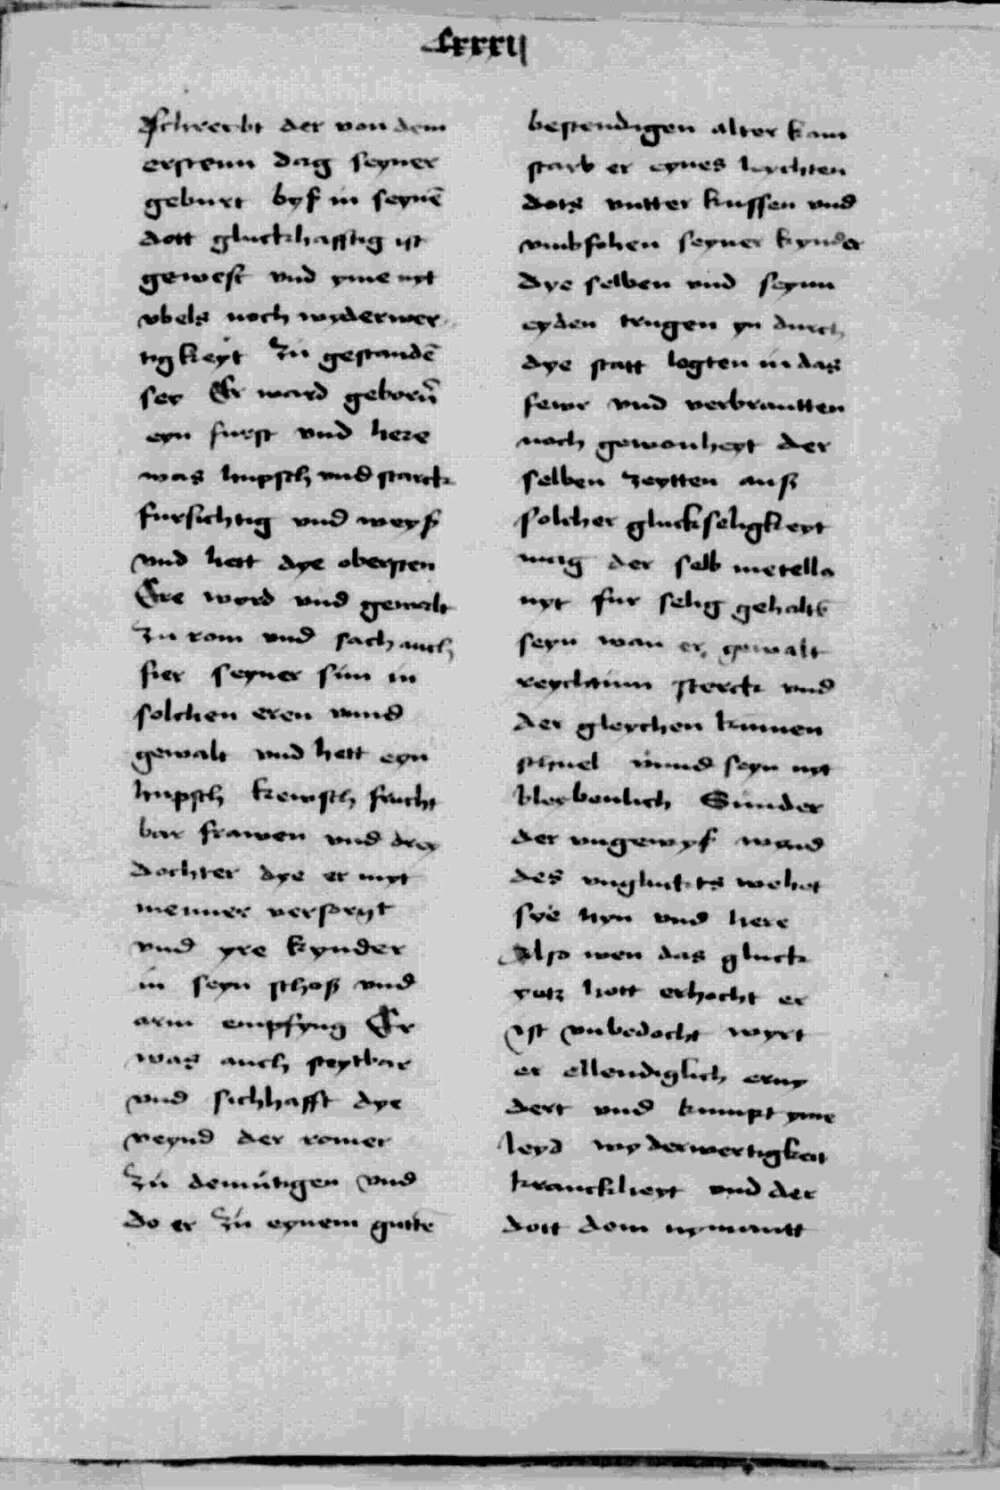 Lxxxij
schreibt der von dem
erstenn dag seyner
geburt byß in seynē
dott gluckhafftig ist
gewest vnd yme nyt
vbels noch wyderwer
tigkeyt zu gestandē
sey Er ward geborn̄
eyn furst vnd here
was hupsch vnd starck
fursichtig vnd weyß
vnd hett dye obersten
Ere word vnd gewalt
zu rom vnd sach auch
fier seyner sün in
solchen eren vnnd
gewalt vnd hett eyn
hupsch kewsch frucht
bar frawen vnd drey
dochter dye er myt
menner versorgt
vnd yre kynder
in seyn schoß vnd
arm empfyng Er
was auch streytbar
vnd sichhafft dye
veynd der romer
zu demütigen vnd
do er zu eynem guttē
bestendigen alter kam
starb er eynes lychten
dots vntter kussen vnd
vmbfohen seyner kynder
dye selben vnd seynn
eyden trugen yn durch
dye statt legten in das
fewr vnd verbrantten
noch gewonheyt der
selben zeytten auß
solcher gluckseligkeyt
mag der selb metello
nyt fur selig gehaltē
seyn wan er gewalt
reychtum sterck vnd
der gleychen kumen
schnel vnnd seyn nyt
bleybenlich Sunder
der vngewyß wand
des vngluckts wehet
sye hyn vnd here
Also wen das gluck
yetz hott erhocht er
ist vnbedocht wyrt
er ellendiglich erny
dert vnd kumpt yme
leyd wyderwertigkeit
kranckheyt vnd der
dott dem nymantt